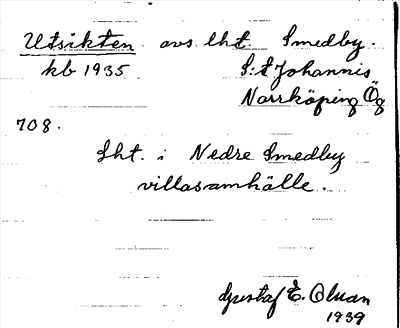 Utsikten avs. lht. Smedby.
kb 1935 S:t Johannis
Norrköping Ög
708.
Lht. i Nedre Smedby
villasamhälle.
Gustaf E. Olman
1939